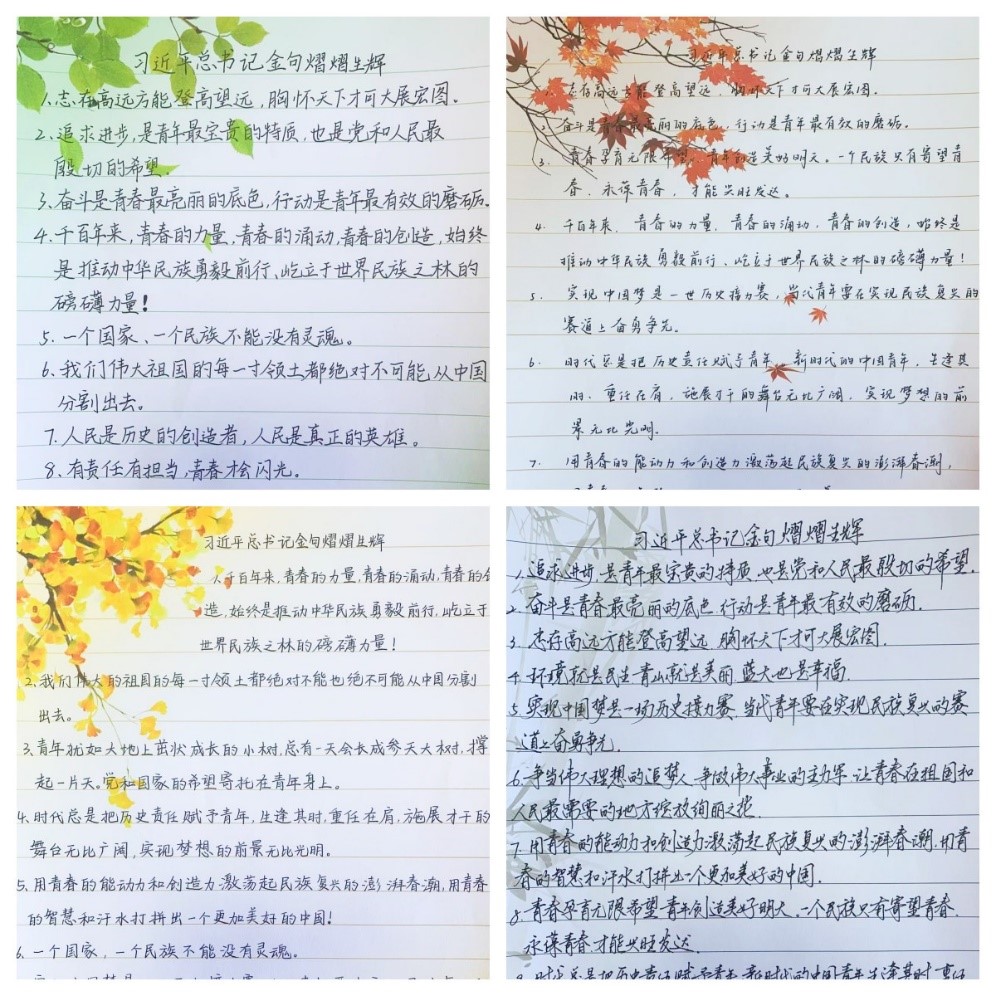 习近平总书记金句熠熠生辉
1.志存高远方能登高望远,胸怀天下才可大展宏图。
2.追求进步,是青年最宝贵的特质,也是党和人民最
殷切的希望.
3.奋斗是青春最亮丽的底色,行动是青年最有效的磨砺。
4.千百年来,青春的力量,青春的涌动,青春的创造,始终
是推动中华民族勇毅前行、屹立于世界民族之林的
磅礴力量!
5.一个国家、一个民族不能没有灵魂。
6.我们伟大祖国的每一寸领土都绝对不可能从中国
分割出去。
7.人民是历史的创造者,人民是真正的英雄。
8.有责任有担当,青春才会闪光。
习近平总书记金句熠熠生辉
1.志存高远方能登高望远,胸怀天下才可大展宏图。
2.奋斗是青春最亮丽的底色,行动是青年最有效的磨砺。
3.青春孕育无限希望,青年创造美好明天。一个民族只有寄望青
春、永葆青春,才能兴旺发达。
4.千百年来,青春的力量,青春的涌动,青春的创造,始终是
推动中华民族勇毅前行、屹立于世界民族之林的磅礴力量!
5.实现中国梦是一 历史接力赛,当代青年要在实现民族复兴的
赛道上奋勇争先。
6.时代总是把历史责任赋予青年。新时代的中国青年,生逢其
时、重任在肩,施展才干的舞台无比广阔,实现梦想的前
景无比光明.
7.用青春的能动力和创造力激荡起民族复兴的澎湃春潮,
习近平总书记金句熠熠生辉
1.千百年来,青春的力量,青春的涌动,青春的创
造,始终是推动中华民族勇毅前行,屹立于
世界民族之林的磅礴力量!
2.我们伟大的祖国的每一寸领土都绝对不能也绝不可能从中国分割
出去。
3.青年就如大地上茁壮成长的小树,总有一天会长成参天大树,撑
起一片天。党和国家的希望寄托在青年身上。
4.时代总是把历史责任赋予青年,生逢其时,重任在肩,施展才干的
舞台无比广阔,实现梦想的前景无比光明。
5.用青春的能动力和创造力激荡起民族复兴的澎湃春潮,用青春
的智慧和汗水打拼出一个更加美好的中国!
6.一个国家,一个民族不能没有灵魂。
习近平总书记金句熠熠生辉
1.追求进步,是青年最宝贵的特质,也是党和人民最殷切的希望.
2.奋斗是青春最亮丽的底色,行动是青年最有效的磨砺.
3.志存高远方能登高望远 胸怀天下才可大展宏图.
4.环境就是民生 青山就是美丽 蓝天也是幸福.
5.实现中国梦是一场历史接力赛,当代青年要在实现民族复兴的赛
道上奋勇争先.
6.争当伟大理想的追梦人,争做伟大事业的主力军,让青春在祖国和
人民最需要的地方绽放绚丽之花.
7.用青春的能动力和创造力激荡起民族复兴的澎湃春潮,用青
春的智慧和汗水打拼出一个更加美好的中国.
8.青春孕育无限希望,青年创造美好明天.一个民族只有寄望青春.
永葆青春才能兴旺发达.
9.时代总是把历史责任赋予青年,新时代的中国青年生逢其时,重任